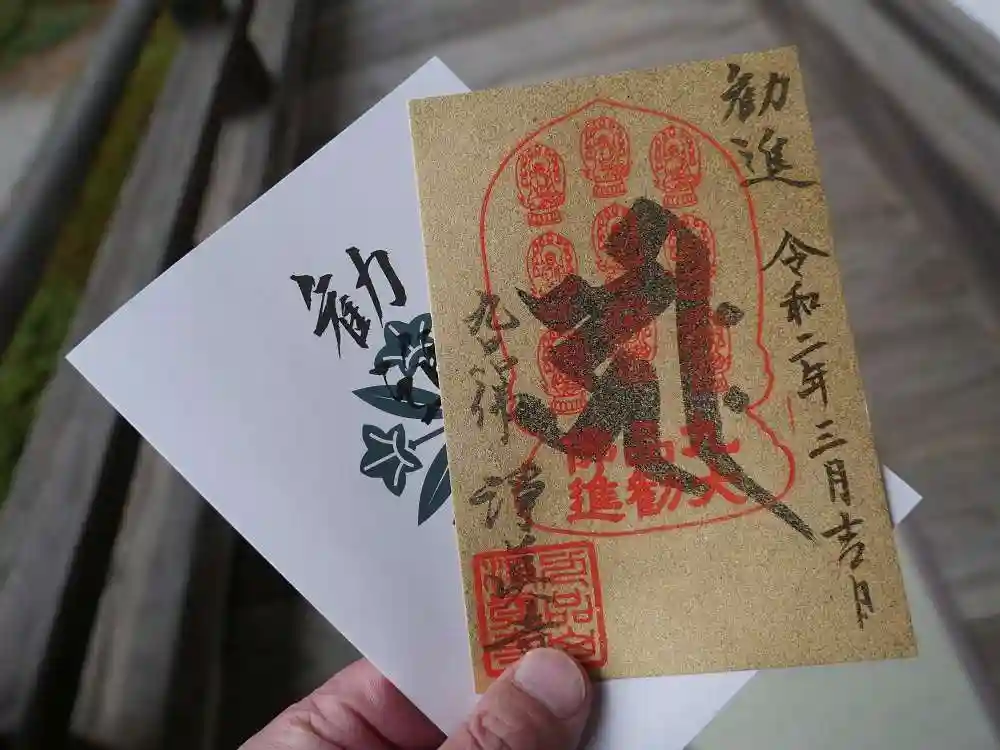 勧進
令和二年 三月吉月
九品佛
大勧進
九品佛 淨真寺
勧